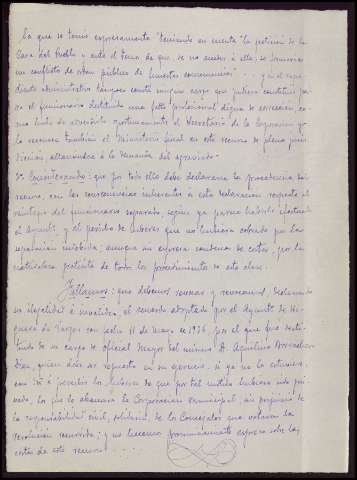 la que se tomó expresamente "teniendo en cuenta la petición de la
Casa del Pueblo y ante el temor de que, de no acceder a ello, se
un conflicto de orden público de funestas consecuencias", y ni el expe-
diente administrativo consta ningún cargo que pudiera constituir pa-
ra el funcionario destituido una falta profesional digna de corrección, co-
mo hubo de advertirlo oportunamente el Secretario de la Corporación y
lo reconoce también el Ministerio fiscal en este recurso de plena juris-
dicción, allanándose a la demanda del agraviado.
5º Considerando: que por todo ello debe declararse la procedencia del
recurso, con las consecuencias inherentes a esta declaración respecto al
reintegro del funcionario separado, según ya parece haberlo efectuado
el Ayuntº, y al percibo de haberes que no hubiera cobrado por las
separación indebida; aunque sin expresa condena de costas, por la
naturaleza gratuita de todos los procedimientos de esta clase.
Fallamos: que debemos revocar y revocamos, declarando
su ilegalidad e invalidez, el acuerdo adoptado por el Ayuntº de Hi-
guera de Vargas con fecha 11 de Mayo de 1936, por el que fué desti-
tuido de su cargo de oficial mayor del mismo D. Aquilino
Díaz, quien debe ser repuesto en su ejercicio, si ya no lo estuviere,
con dº a percibir los haberes de que por tal motivo hubiera sido pri-
vado, lo que le abonará la Corporación municipal, sin perjuicio de
la responsabilidad civil, solidaria, de los Concejales que votaron la
resolución recurrida; y no hacemos pronunciamiento expreso sobre las
costas de este recurso